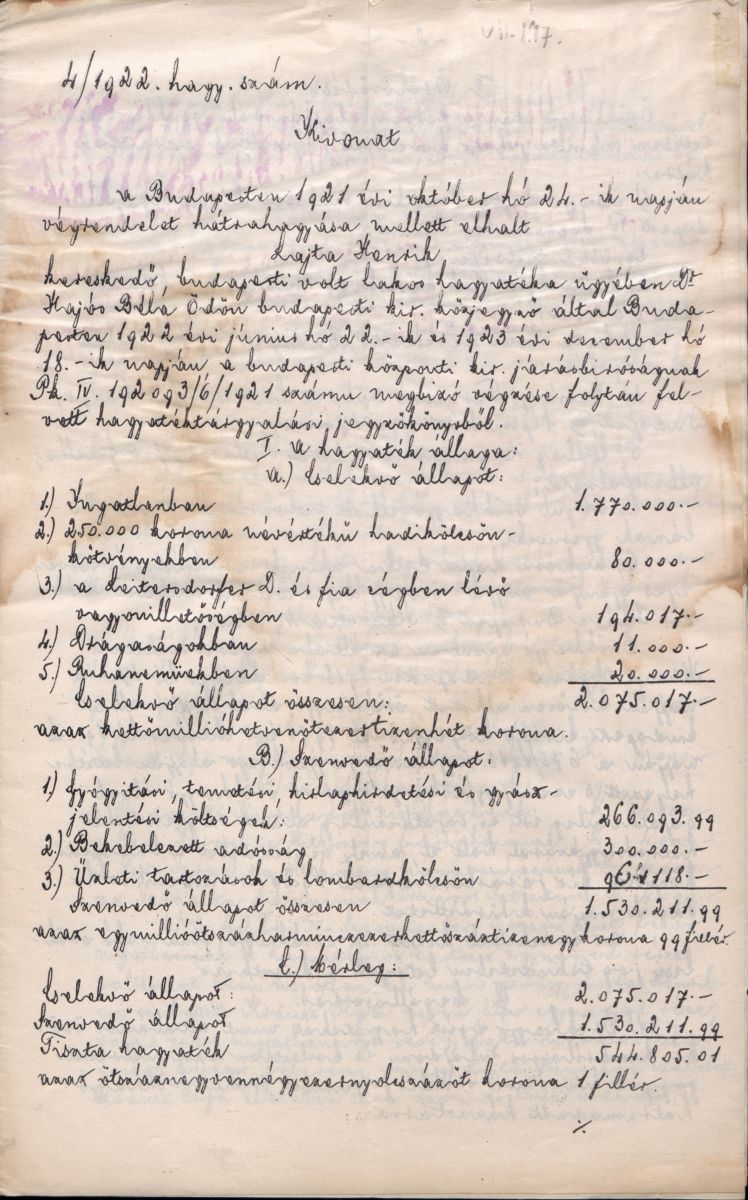 VII.-1.17.
4/1922. hagy. szám.
Kivonat
a Budapesten 1921 évi október hó 24.-ik napján
végrendelet hátrahagyása mellett elhalt
Lajta Henrik
kereskedő, budapesti volt lakos hagyatéka ügyében Dr
Hajós Béla Ödön budapesti kir. közjegyző által Buda-
pesten 1922 évi június hó 22.-ik és 1923 évi december hó
18.-ik napján, a budapesti központi kir. járásbiróságnak
Pk. IV. 192093/6/1921 számu megbizó végzése folytán fel-
vett hagyatéktárgyalási jegyzőkönyvből.
I. A hagyaték állaga:
a.) Cselekvő állapot:
1.) Ingatlanban 1.770.000.-
2.) 250.000 korona névértékű hadikölcsön-
kötvényekben 80.000.-
3.) a Leitersdorfer D. és fia cégben lévő
vagyonilletőségben 194.017.-
4.) Drágaságokban 11.000.-
5.) Ruhaneműekben 20.000.-
Cselekvő állapot összesen: 2.075.017.-
azaz kettőmillióhetvenötezertizenhét korona.
B.) Szenvedő állapot.
1.) Gyógyitási, temetési, hirlaphirdetési és gyász-
jelentési költségek: 266.093.99
2.) Bekebelezett adósság 300.000.-
3.) Üzleti tartozások és lombardkölcsön 964118.-
Szenvedő állapot összesen 1.530.211.99
azaz egymillióötszázharminczezerkettőszáztizenegy korona 99 fillér.
C.) Mérleg:
Cselekvő állapot: 2.075.017.-
Szenvedő állapot 1.530.211.99
Tiszta hagyaték 544.805.01
azaz ötszáznegyvennégyezernyolcszázöt korona 1 fillér.
./.